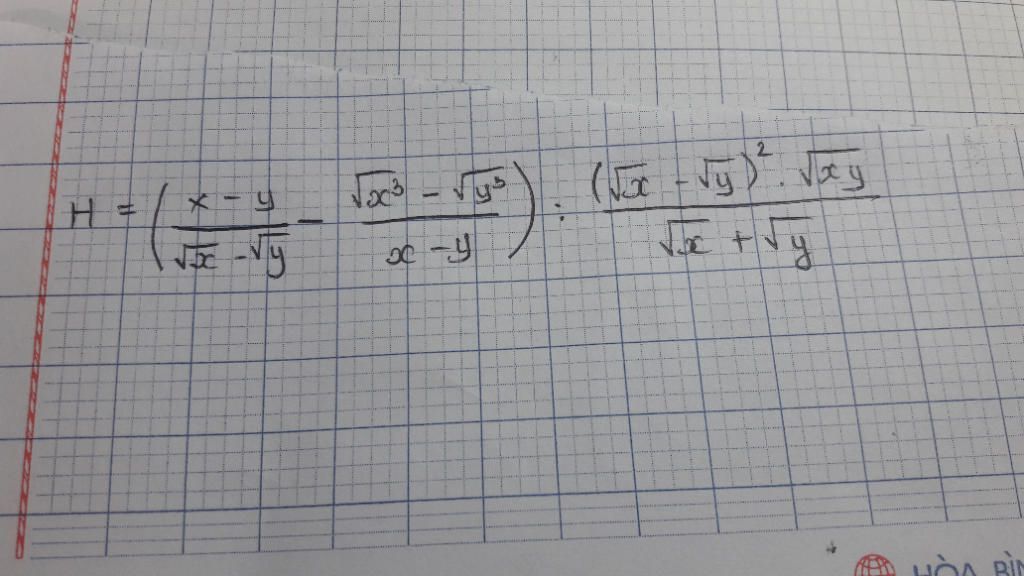 H = ( (x - y)/(√x - √y) - (√x³ - √y³)/(x - y) ) : ((√x - √y)² . √xy)/(√x + √y)
HÒA BÌN